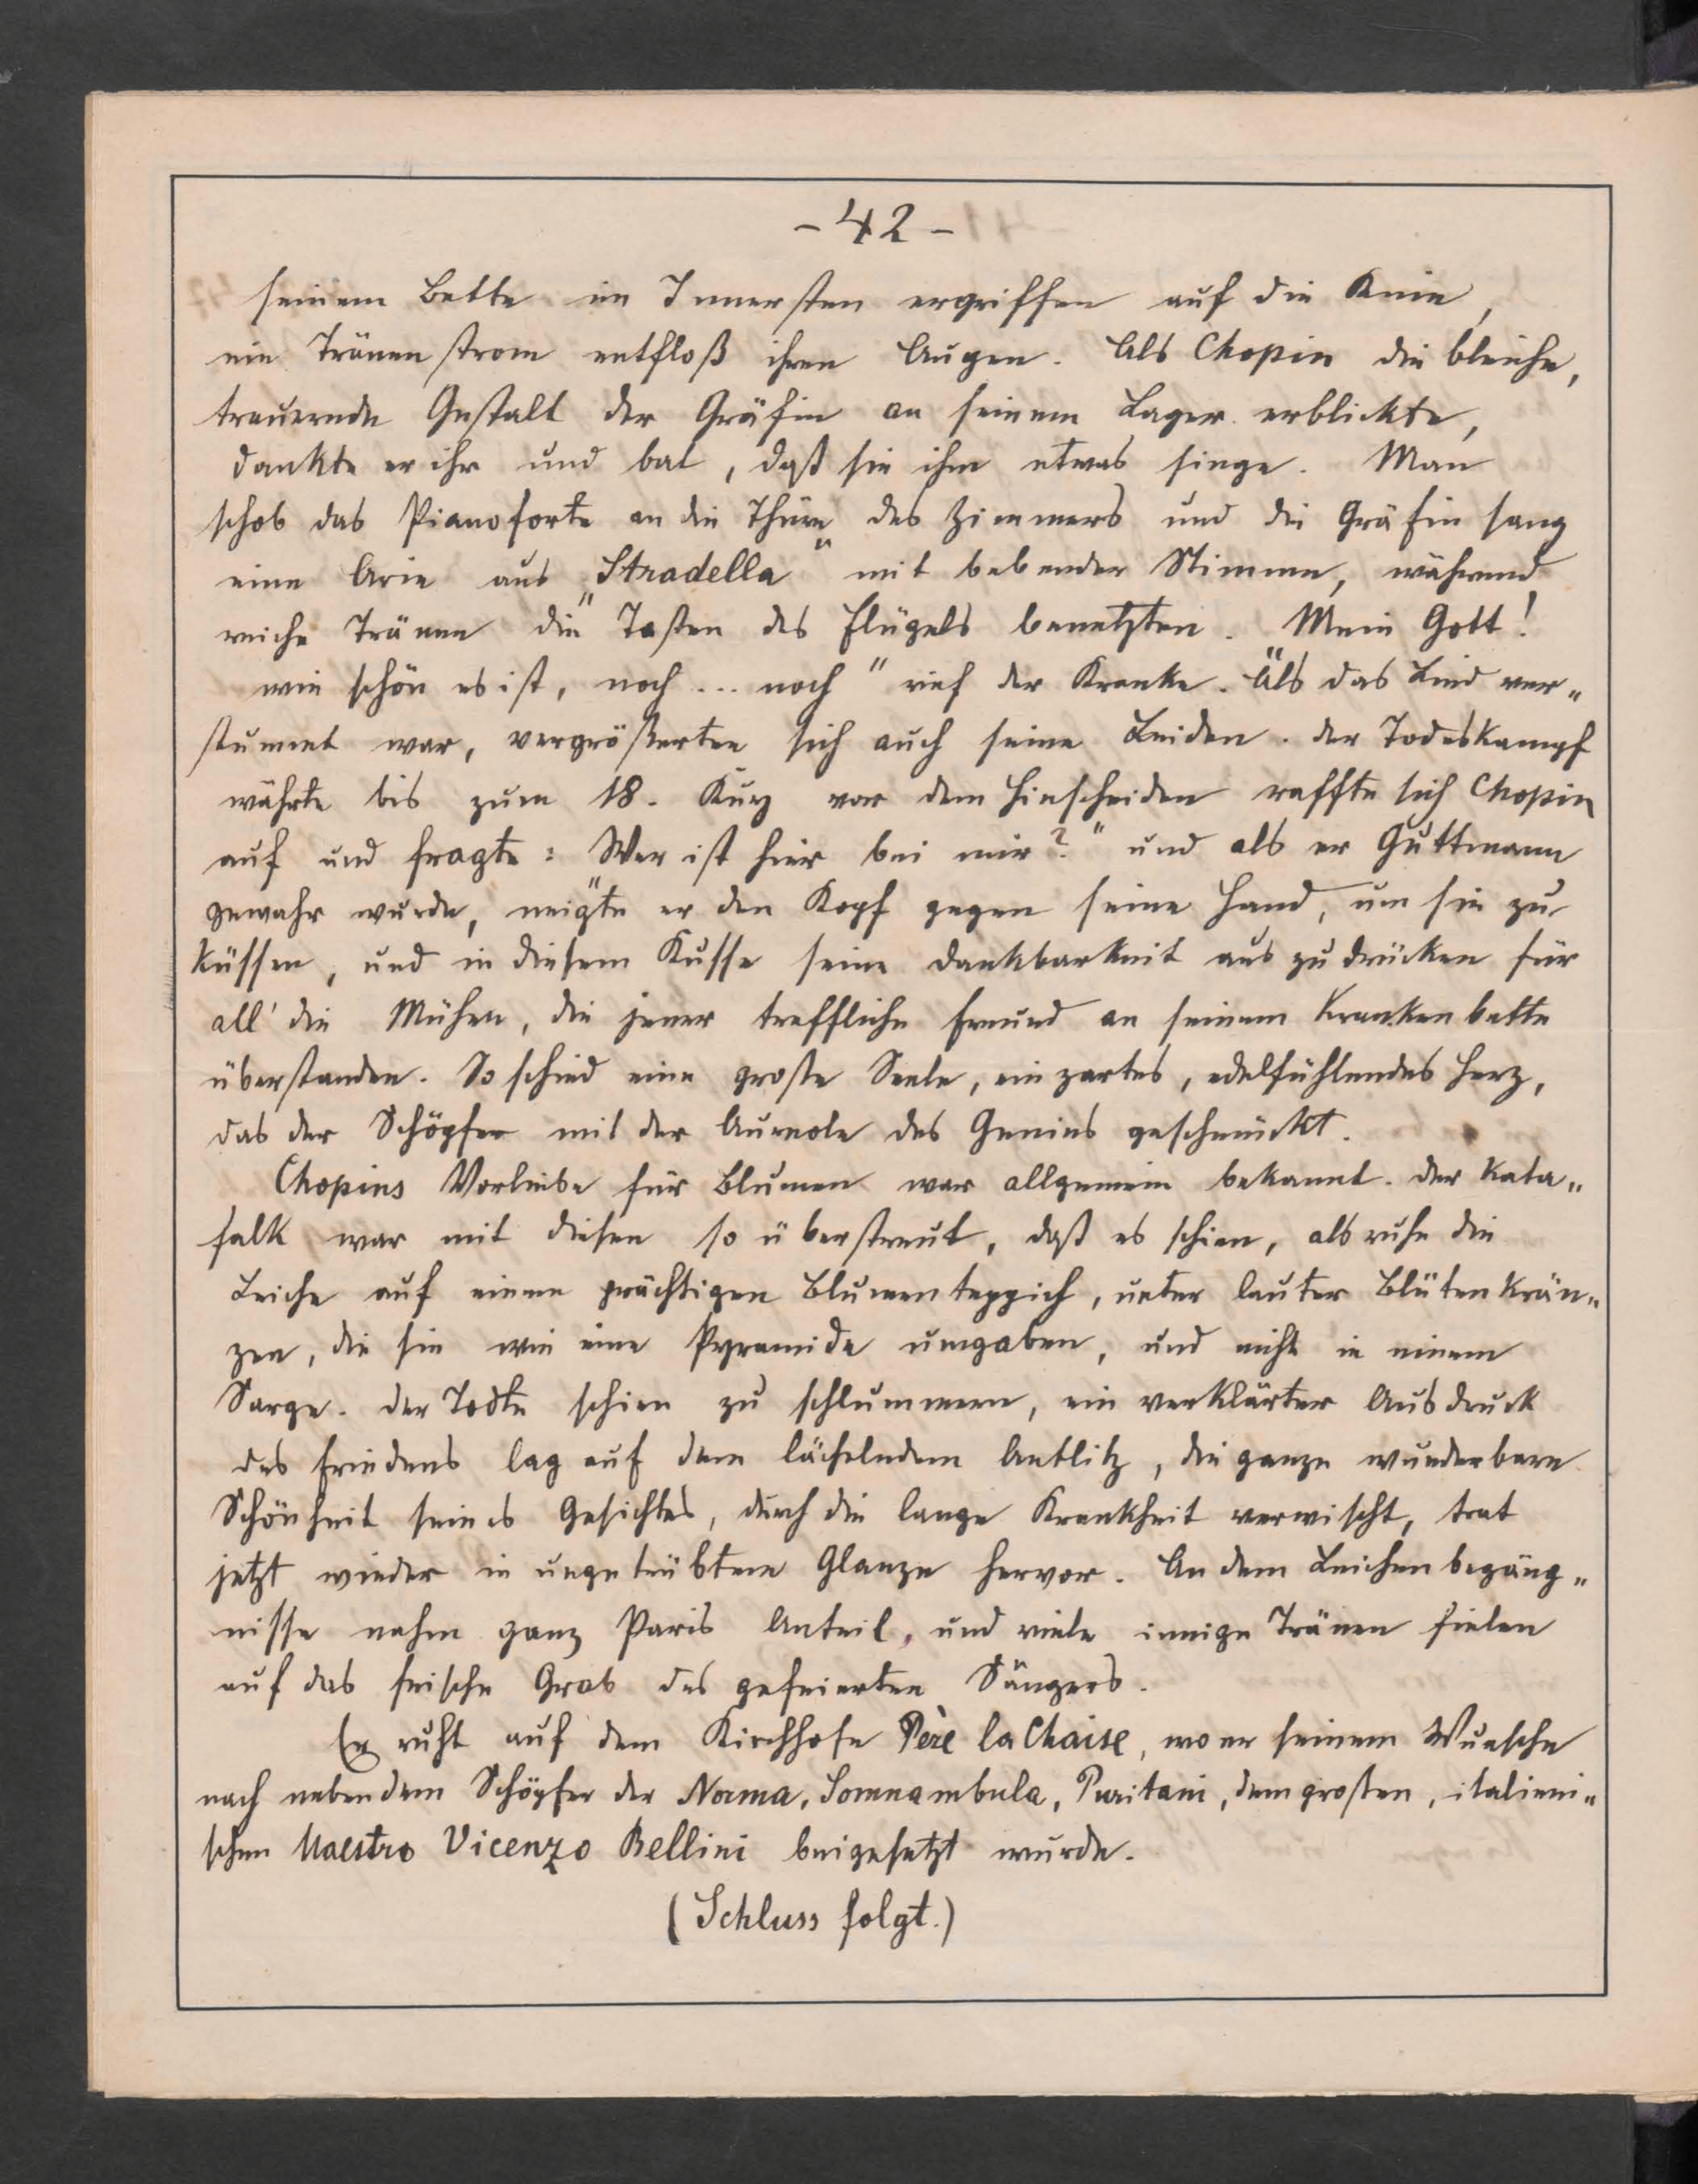 - 42 -
seinem Bette im Innersten ergriffen auf die Knie,
ein Tränenstrom entfloß ihren Augen. Als Chopin die bleiche,
trauernde Gestalt der Gräfin an seinem Lager erblickte,
dankte er ihr und bat, daß sie ihm etwas singe. Man
schob das Pianoforte an die Thüre des Zimmers und die Gräfin sang
eine Arie aus „Stradella“ mit bebender Stimme, während
reiche Tränen die Tasten des Flügels benetzten. „Mein Gott!
wie schön es ist, noch ... noch“ rief der Kranke. Als das Lied ver„
stummt war, vergrößerten sich auch seine Leiden. Der Todeskampf
währte bis zum 18. Kurz vor dem Hinscheiden raffte sich Chopin
auf und fragte: „Wer ist hier bei mir?“ und als er Guttmann
gewahr wurde, neigte er den Kopf gegen seine Hand, um sie zu
küssen, und in diesem Kusse seine Dankbarkeit auszudrücken für
all' die Mühen, die jener treffliche Freund an seinem Krankenbette
überstanden. So schied eine große Seele, ein zartes, edelfühlendes Herz,
das der Schöpfer mit der Aureole des Genius geschmückt.
Chopins Vorliebe für Blumen war allgemein bekannt. Der Kata„
falk war mit diesen so überstreut, daß es schien, als ruhe die
Leiche auf einem prächtigen Blumenteppich, unter lauter Blütenkrän„
zen, die sie wie eine Pyramide umgaben, und nicht in einem
Sarge. Der Todte schien zu schlummern, ein verklärter Ausdruck
des Friedens lag auf dem lächelndem Antlitz, die ganze wunderbare
Schönheit seines Gesichtes, durch die lange Krankheit verwischt, trat
jetzt wieder in ungetrübtem Glanze hervor. An dem Leichenbegäng„
nisse nahm ganz Paris Anteil, und viele innige Tränen fielen
auf das frische Grab des gefeierten Sängers.
Er ruht auf dem Kirchhofe Père la Chaise, wo er seinem Wunsche
nach neben dem Schöpfer der Norma, Somnambula, Puritani, dem großen, italieni„
schen Maestro Vicenzo Bellini beigesetzt wurde.
(Schluss folgt.)